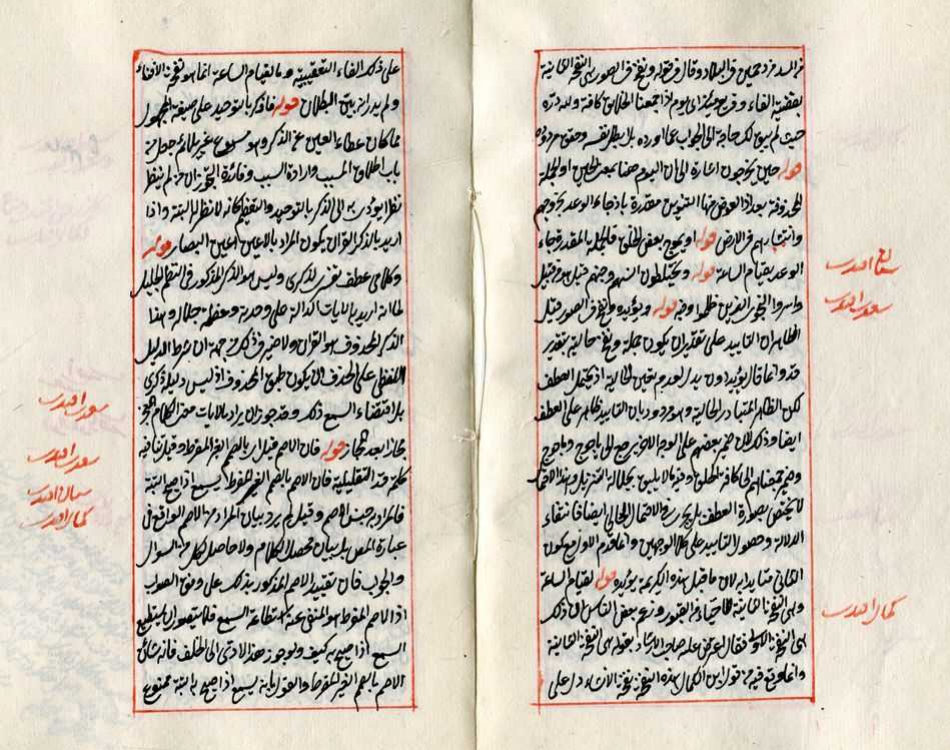 في البلاد وقال في قوله ونفخ في الصور هي النفخة الثانية
بقضية الفاء يوم اذ جمعنا الخلائق كافة ولله دره
حيث لم يبق لك حاجة الى الجواب عما اورده
قوله حين يخرجون اشارة الى ان اليوم هنا بمعنى الحين او الجملة
المحذوفة بعد اذ العوض عنها التنوين مقدرة باذ جاء الوعد بخروجهم
وانتشارهم في الارض قوله او يموج بعض الخلق فالجملة المقدرة جاء
الوعد بقيام الساعة قوله ويختلطون انسهم وجنهم قيل هو من قبيل
واسروا النجوى الذين ظلموا وفيه قوله ويؤيده ونفخ في الصور قيل
الظاهر ان التاييد على تقدير ان يكون جملة ونفخ حالية بتقدير
قد وانما قال يؤيد دون يدل لعدم تعين الحالية اذ يحتمل العطف
لكن الظاهر المتبادر الحالية وهو مردود بان التاييد ظاهر على العطف
ايضا وذلك لان ضمير بعضهم على الوجه الاخير يرجع الى ياجوج وماجوج
وضمير جمعناهم الى كافة الخلق وفيه ما لا يليق بجلالة التنزيل وهذا الاحتمال
لا يختص بصورة العطف بل يجري في الاحتمال الحالي ايضا فانتفاء
الدلالة وحصول التاييد على كلا الوجهين وانما قدم الاول مع كون
الثاني لان ما قبل هذه الكريمة يؤيده قوله لقيام الساعة
وهي النفخة الثانية للاحياء في القبور وزعم بعض الناس ان ذلك
هي النفخة الاولى فقال المعترض على صاحب الارشاد بقوله هي النفخة الثانية
وانما وقع فيه من قول ابن الكمال هذه النفخة نفخة الافناء دل على
سعدي افندي
كمال افندي
على ذلك الفاء التعقيبية وما لقيام الساعة انما هو نفخة الافناء
ولم يدر انه بين البطلان قوله فاذكر بالتوحيد على صيغة المجهول
لما كان غطاء العين عن الذكر وهو مسموع غير ملائم جعل من
باب اطلاق المسبب وارادة السبب وفائدة التجوز ان من لم ينظر
نظرا يؤدى به الى الذكر بالتوحيد والتعظيم كانه لا نظر له البتة واذا
اريد بالذكر القران يكون المراد بالاعين اعين البصائر قوله
وكلامي عطف تفسير لذكري وليس هو الذكر المذكور في النظم الجليل
لما انه اريد به الايات الدالة على وحدته وعظمة جلاله وهذا
الذكر المحذوف هو القران ولا ضير في ذلك من جهة ان شرط الدليل
اللفظي على الحذف ان يكون طبق المحذوف اذ ليس دليله ذكري
بل اقتضاء السمع ذلك وقد جوز ان يراد بالايات معنى الكلام فهو
مجاز بعد مجاز قوله فان الاصم قيل اي بالصمم الغير المفرط وقيل شافيه
كلمة قد التقليلية فان الاصم بالصمم الغير المفرط يسمع اذا صيح البتة
فالمراد به جنس الاصم وقيل لم يرد بيان المراد من الاصم الواقع في
عبارة المص بل بيان محصل الكلام ولا حاصل لكل من السؤال
والجواب فان تقييد الاصم المذكور بذلك على وفق الصواب
اذ الاصم المفرط هو المنتفي عنه استطاعة السمع فلا يتصور ان يستطيع
السمع اذا صيح به كيف ولو جوز هذا لادى الى الخلف فانه شائع
الاصم بالصمم الغير المفرط والقول بانه يسمع اذا صيح به البتة ممنوع
سعدي افندي
سعدي افندي
سنان افندي
كمال افندي